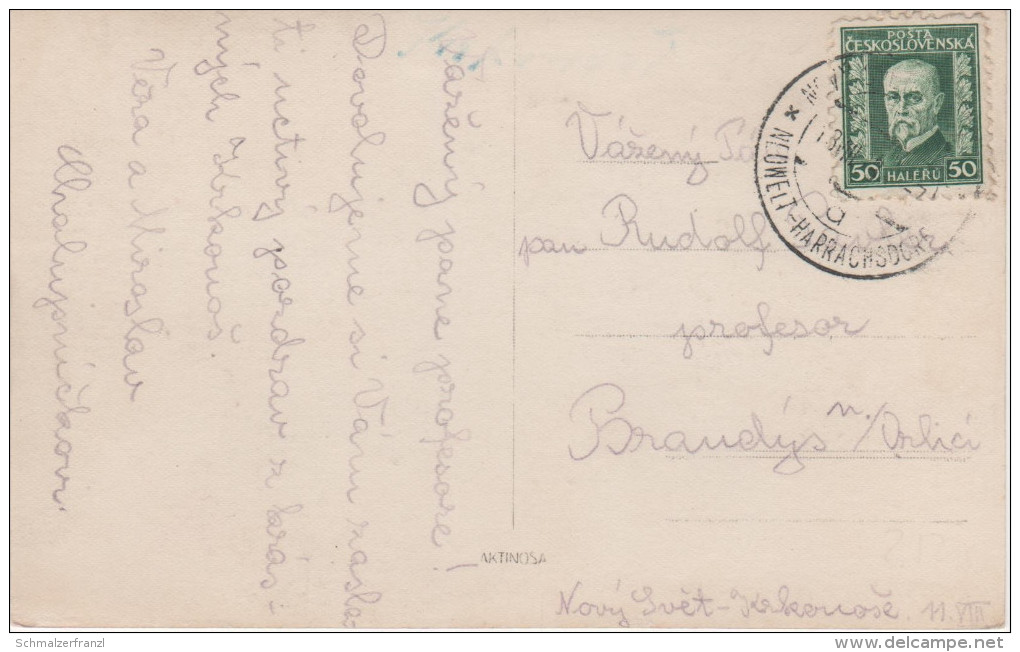 Vážený pane profesore!
Dovolujeme si Vám zasla-
ti uctivý pozdrav z krás-
ných Krkonoš.
Věra a Miroslav
Chalupníčkovi.
POSTA
ČESKOSLOVENSKÁ
50 HALÉŘŮ 50
NEUWELT-HARRACHSDORF
Vážený
pan Rudolf
profesor
Brandýs n./Orlicí
AKTINOSA
Nový Svět-Krkonoše. 11.VIII
Schmalzerfranzl
delcampe.net